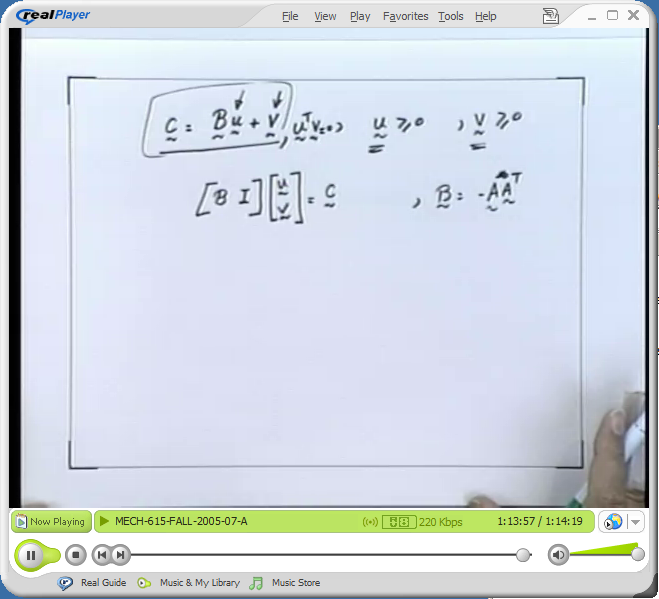 realPlayer
File View Play Favorites Tools Help
C = B u + V , uᵀV = 0, u ≥ 0 , V ≥ 0
[B I] [u V] = C , B = -A Aᵀ
Now Playing MECH-615-FALL-2005-07-A 220 Kbps 1:13:57 / 1:14:19
Real Guide Music & My Library Music Store